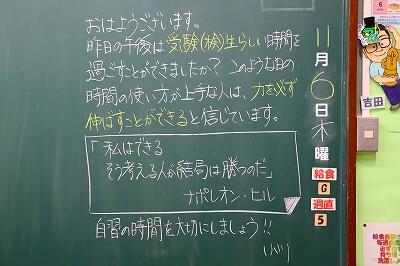 おはようございます。
昨日の午後は受験(検)生らしい時間を
過ごすことができましたか？このような日の
時間の使い方が上手な人は、力を必ず
伸ばすことができると信じています。
「私はできる
そう考える人が結局は勝つのだ」
ナポレオン・ヒル
自習の時間を大切にしましょう!!
11
月
6
日
木
曜
給食
G
週直
5
6
吉田